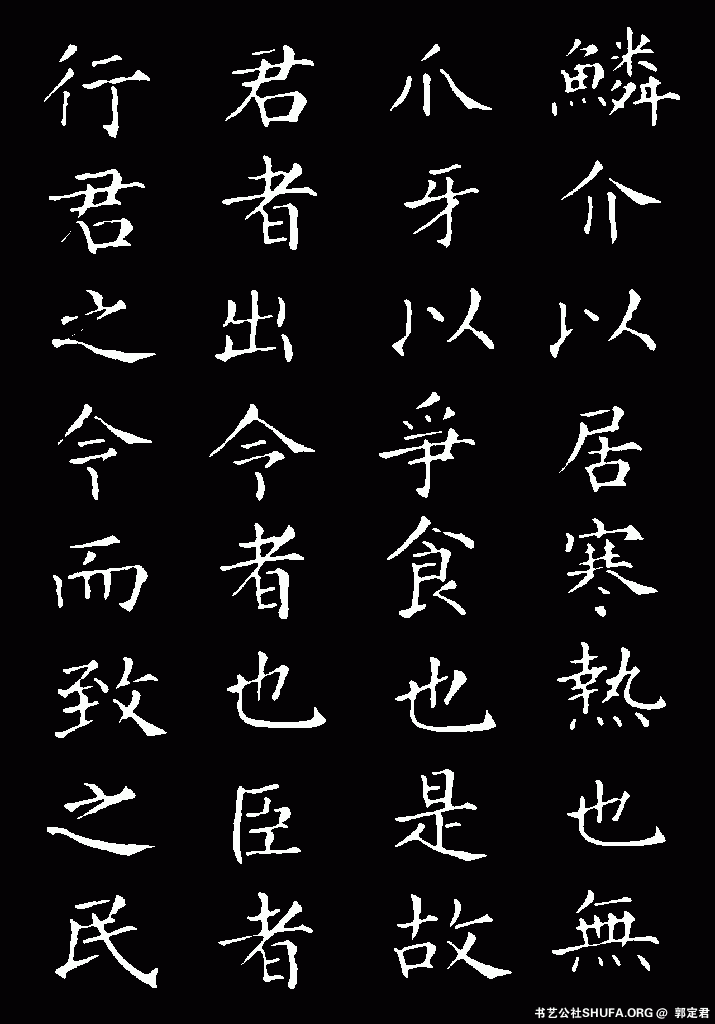 鱗介以居寒熱也無
爪牙以爭食也是故
君者出令者也臣者
行君之令而致之民
书艺公社SHUFA.ORG @ 郭定君